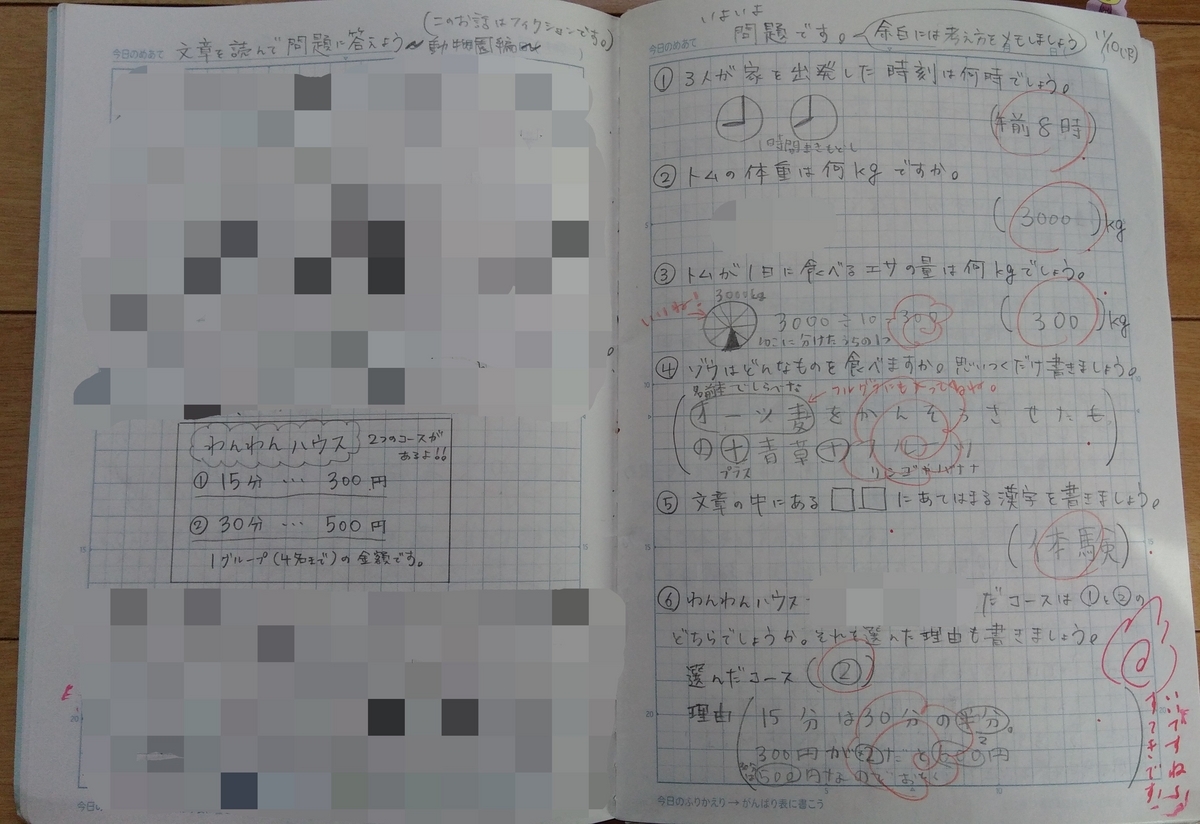 (このお話はフィクションです。)
今日のめあて 文章を読んで問題に答えよう〜動物園編〜
わんわんハウス 2つのコースが
あるよ!!
① 15分 … 300円
② 30分 … 500円
1グループ(4名まで)の金額です。
いよいよ
今日のめあて 問題です。 余白には考え方をメモしましょう 11/10(火)
① 3人が家を出発した時刻は何時でしょう。
(午前8時)
1時間まきもどし
② トムの体重は何kgですか。
(3000)kg
③ トムが1日に食べるエサの量は何kgでしょう。
いいね!
3000kg
3000÷10=300
10こに分けたうちの1つ
(300)kg
④ ゾウはどんなものを食べますか。思いつくだけ書きましょう。
オーツ麦をかんそうさせたも
の+青草+フルーツ
プラス リンゴやバナナ
⑤ 文章の中にある□□にあてはまる漢字を書きましょう。
(体験)
⑥ わんわんハウス
だコースは①と②の
どちらでしょうか。それを選んだ理由も書きましょう。
選んだコース (②)
理由 15分は30分の半分。
300円が②だと
500円なので
今日のふりかえり→がんばり表に書こう